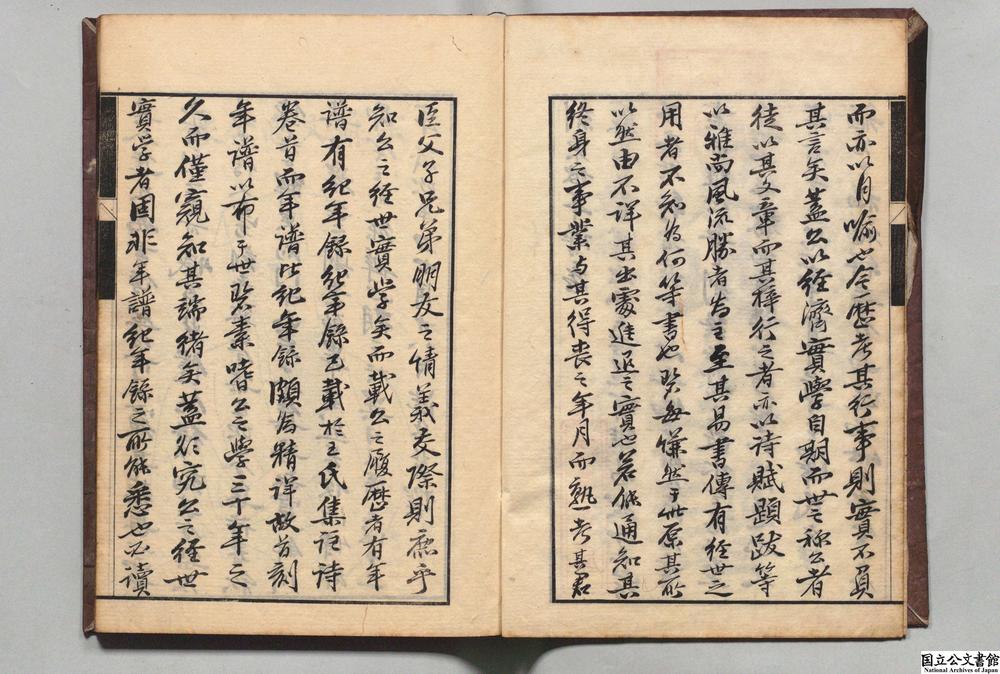 而亦以月喻也今歴考其行事則實不負
其言矣蓋公以経濟實學自期而世之称公者
徒以其文章而其梓行之者亦以詩賦題跋等
以雅尚風流勝者為主至其易書傳有経世之
用者不知為何等書也 毎慊然于此原其所
以然由不詳其出處進退之實也若能通知其
終身之事業与其得喪之年月而熟考其君
臣父子兄弟朋友之情義交際則庶乎
知公之経世實学矣而載公之履歴者有年
譜有紀年録紀年録已載於王氏集註詩
巻首而年譜比紀年録頗為精詳故首刻
年譜以布于世 素嗜公之學三十年之
久而僅窺知其端緒矣蓋欲究公之経世
實学者固非年譜紀年録之所能悉也不讀
国立公文書館
National Archives of Japan